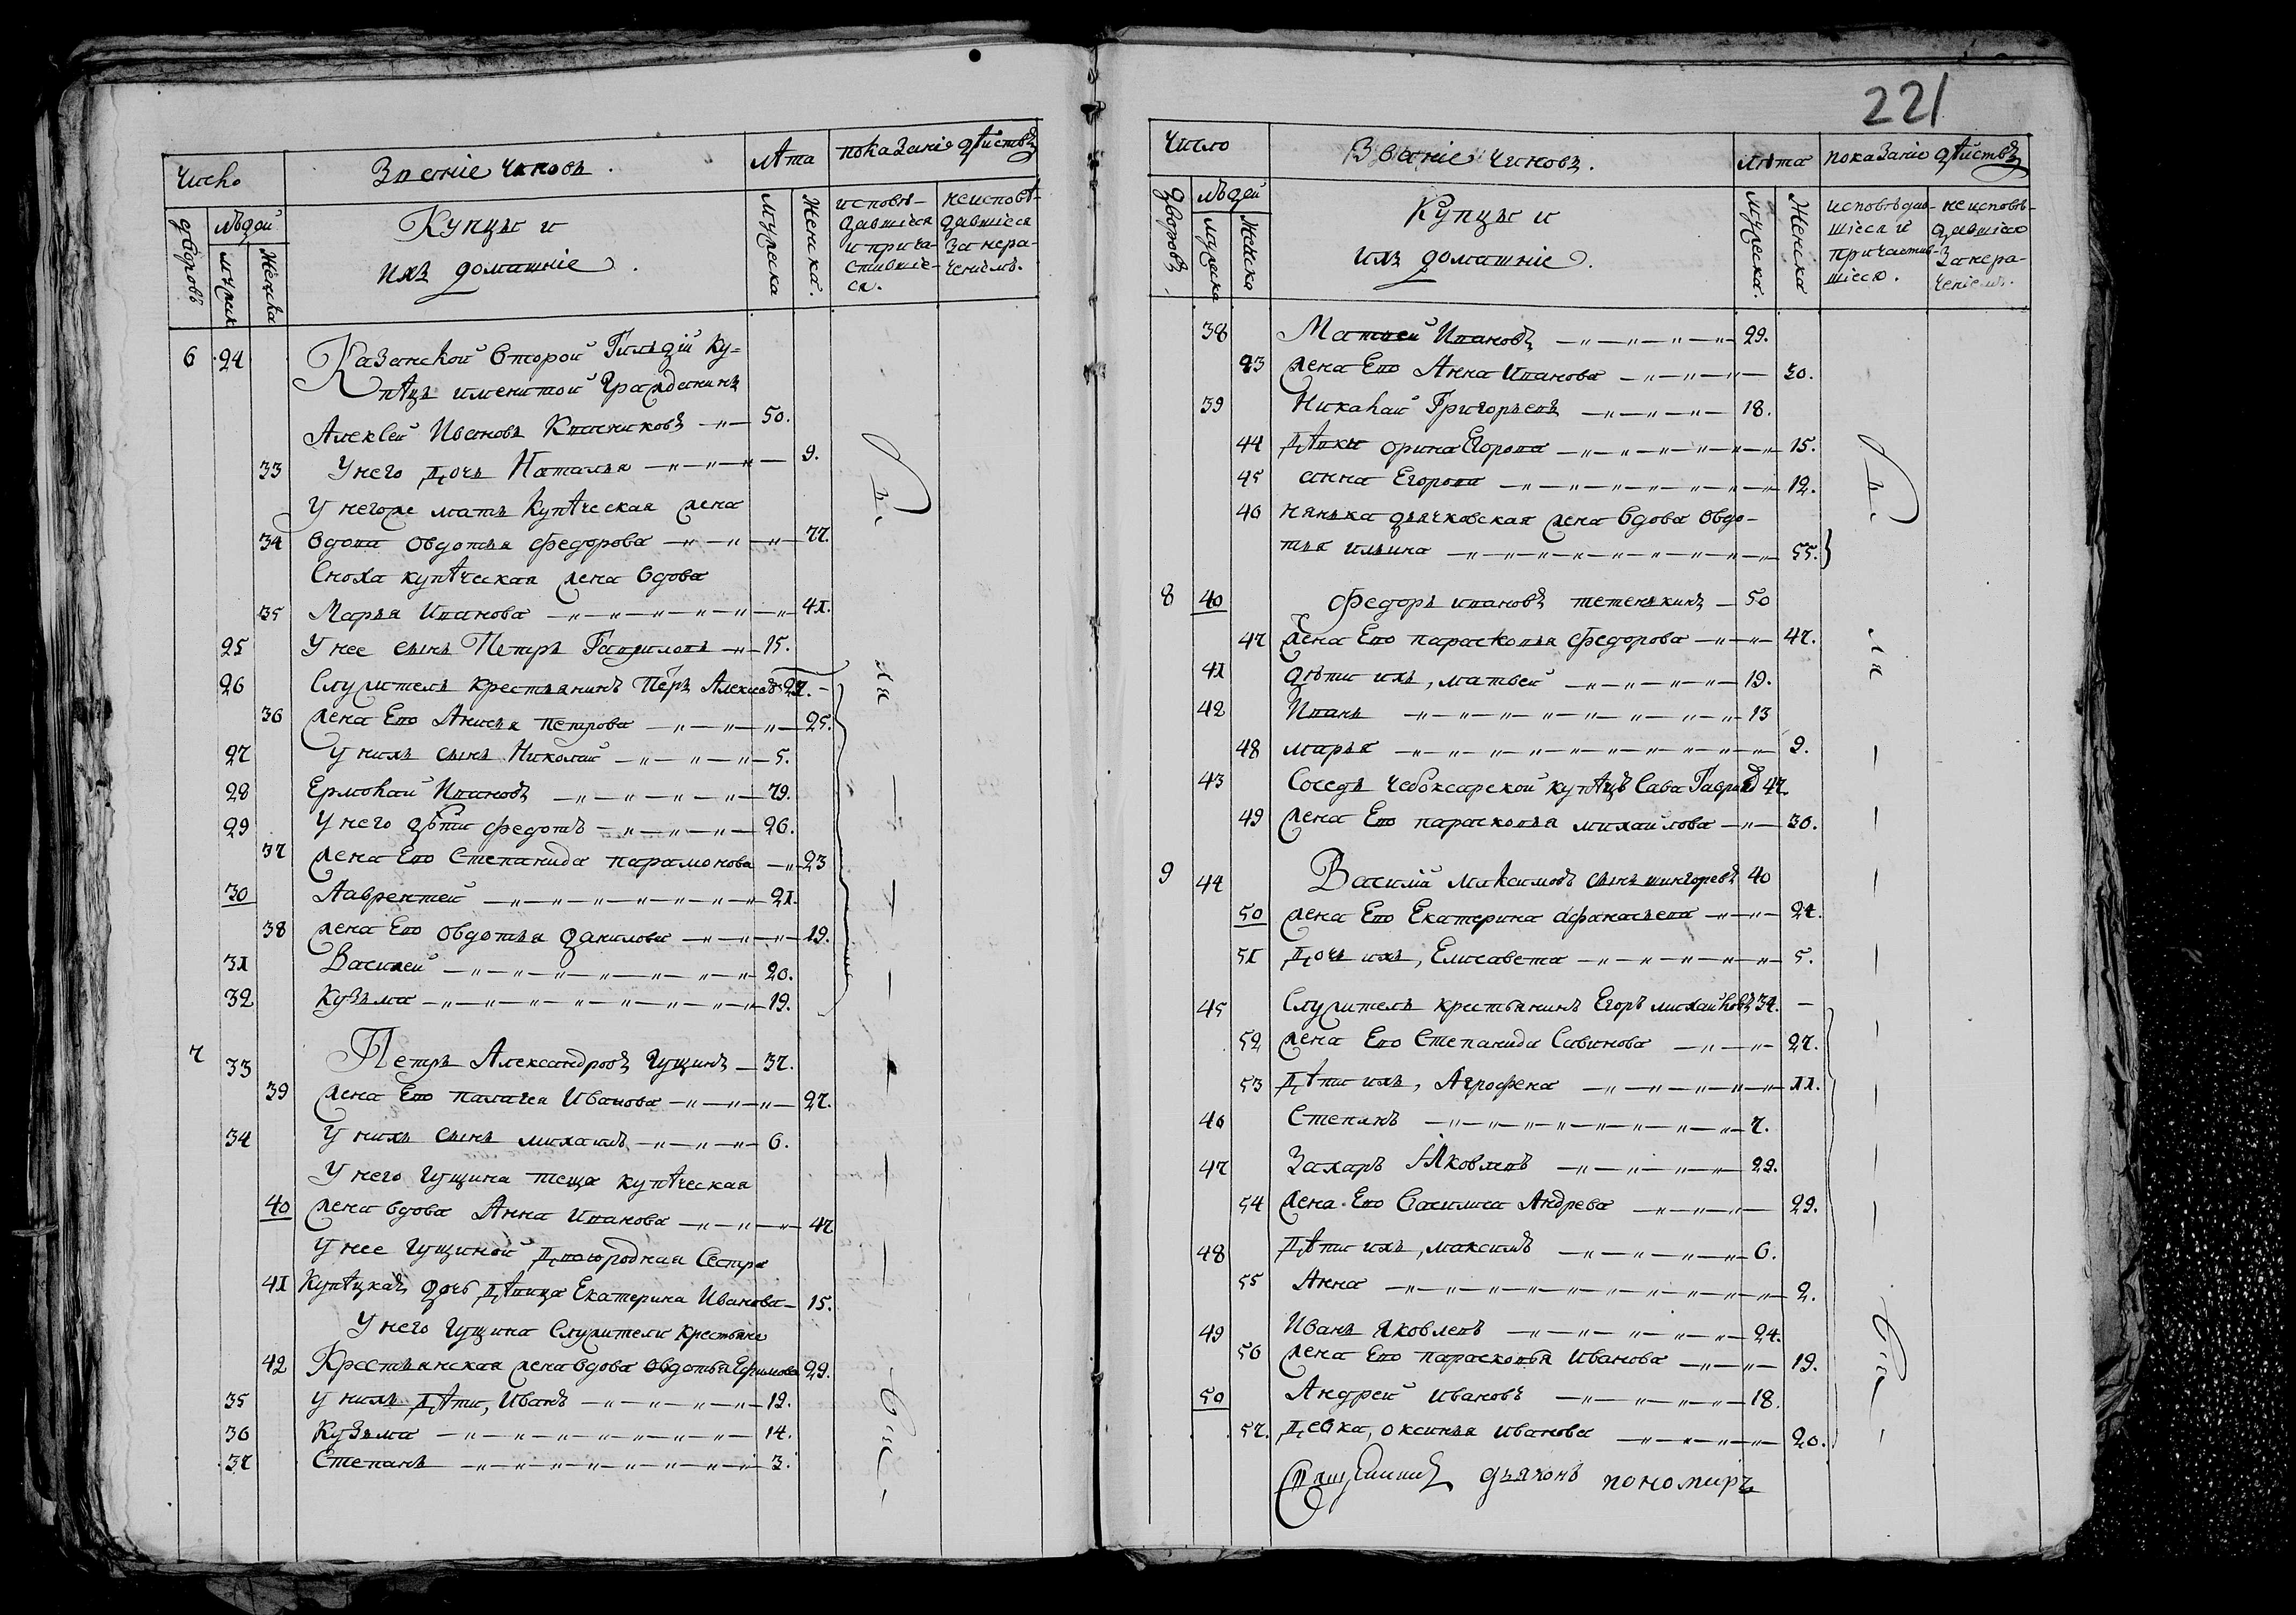 Число
Званіе чиновъ.
лѣта
показаніе дѣйствъ
дворовъ
людей
мужеска
женска
Купцы и
ихъ домашніе.
мужеска
женска.
исповѣ-
давшіеся
и прича-
стившіе-
ся.
неисповѣ-
давшіеся
за нера-
ченіемъ.
6 24 Казанской второй Гильдіи Ку-
пѣцъ именитой Гражданинъ
Алексей Ивановъ Квасниковъ 50.
33 У него дочь Наталья 9.
У негоже мать Купѣческая жена
34 вдова Овдотья Федорова 77.
Сноха купѣческая жена вдова
35 Марья Иванова 41.
25 У нее сынъ Петръ Гавриловъ 15.
26 Служитель крестьянинъ Петръ Алексеевъ 27.
36 жена Ево Анисья Петрова 25.
27 У нихъ сынъ Николай 5.
28 Ермолай Ивановъ 79.
29 У него дѣти Федотъ 26.
37 жена Ево Степанида Парамонова 23
30 Лаврентей 21.
38 жена Ево Овдотья Данилова 19.
31 Василей 20.
32 Кузьма 19.
7 33 Петръ Александровъ Гущинъ 37.
39 жена Ево Палагея Иванова 27.
34 У нихъ сынъ Михаилъ 6.
У него Гущина теща купѣческая
40 жена вдова Анна Иванова 47
У нее Гущиной двоюродная Сестра
41 Купѣцкая дочь дѣвица Екатерина Иванова 15.
У него Гущина Служители крестьяне
42 Крестьянская жена вдова Овдотья Ефимова 29.
35 У нихъ дѣти, Иванъ 12.
36 Кузьма 14.
37 Степанъ 3.
221
Число
Званіе чиновъ.
лѣта
показаніе дѣйствъ
дворовъ
людей
мужеска
женска
Купцы и
ихъ домашніе.
мужеска.
женска
исповѣдав-
шіеся и
причастив-
шіеся.
неисповѣ-
давшіеся
за нера-
ченіемъ.
38 Матвей Ивановъ 29.
43 жена Ево Анна Иванова 30.
39 Николай Григорьевъ 18.
44 Дѣвки Орина Егорова 15.
45 Анна Егорова 12.
46 нянька дьячковская жена вдова Овдо-
тья Ильина 55.
8 40 Федоръ Ивановъ Тетенькинъ 50
47 жена Ево Парасковья Федорова 47.
41 дѣти ихъ, Матвей 19.
42 Иванъ 13
48 Марья 9.
43 Соседъ Чебоксарской купѣцъ Сава Гаврилов 47.
49 жена Ево Парасковья Михайлова 30.
9 44 Василій Максимовъ сынъ 40
50 жена Ево Екатерина Афанасьева 24.
51 дочь ихъ, Елисавета 5.
45 Служитель крестьянинъ Егоръ Михайловъ 34.
52 жена Ево Степанида Савинова 27.
53 дѣти ихъ, Агрофена 11.
46 Степанъ 7.
47 Захаръ Яковлевъ 29.
54 жена Ево Василиса Андрева 29.
48 дѣти ихъ, Максимъ 6.
55 Анна 2.
49 Иванъ Яковлевъ 24.
56 жена Ево Парасковья Иванова 19.
50 Андрей Ивановъ 18.
57. девка, Оксинья Иванова 20.
Священникъ дьяконъ пономарь